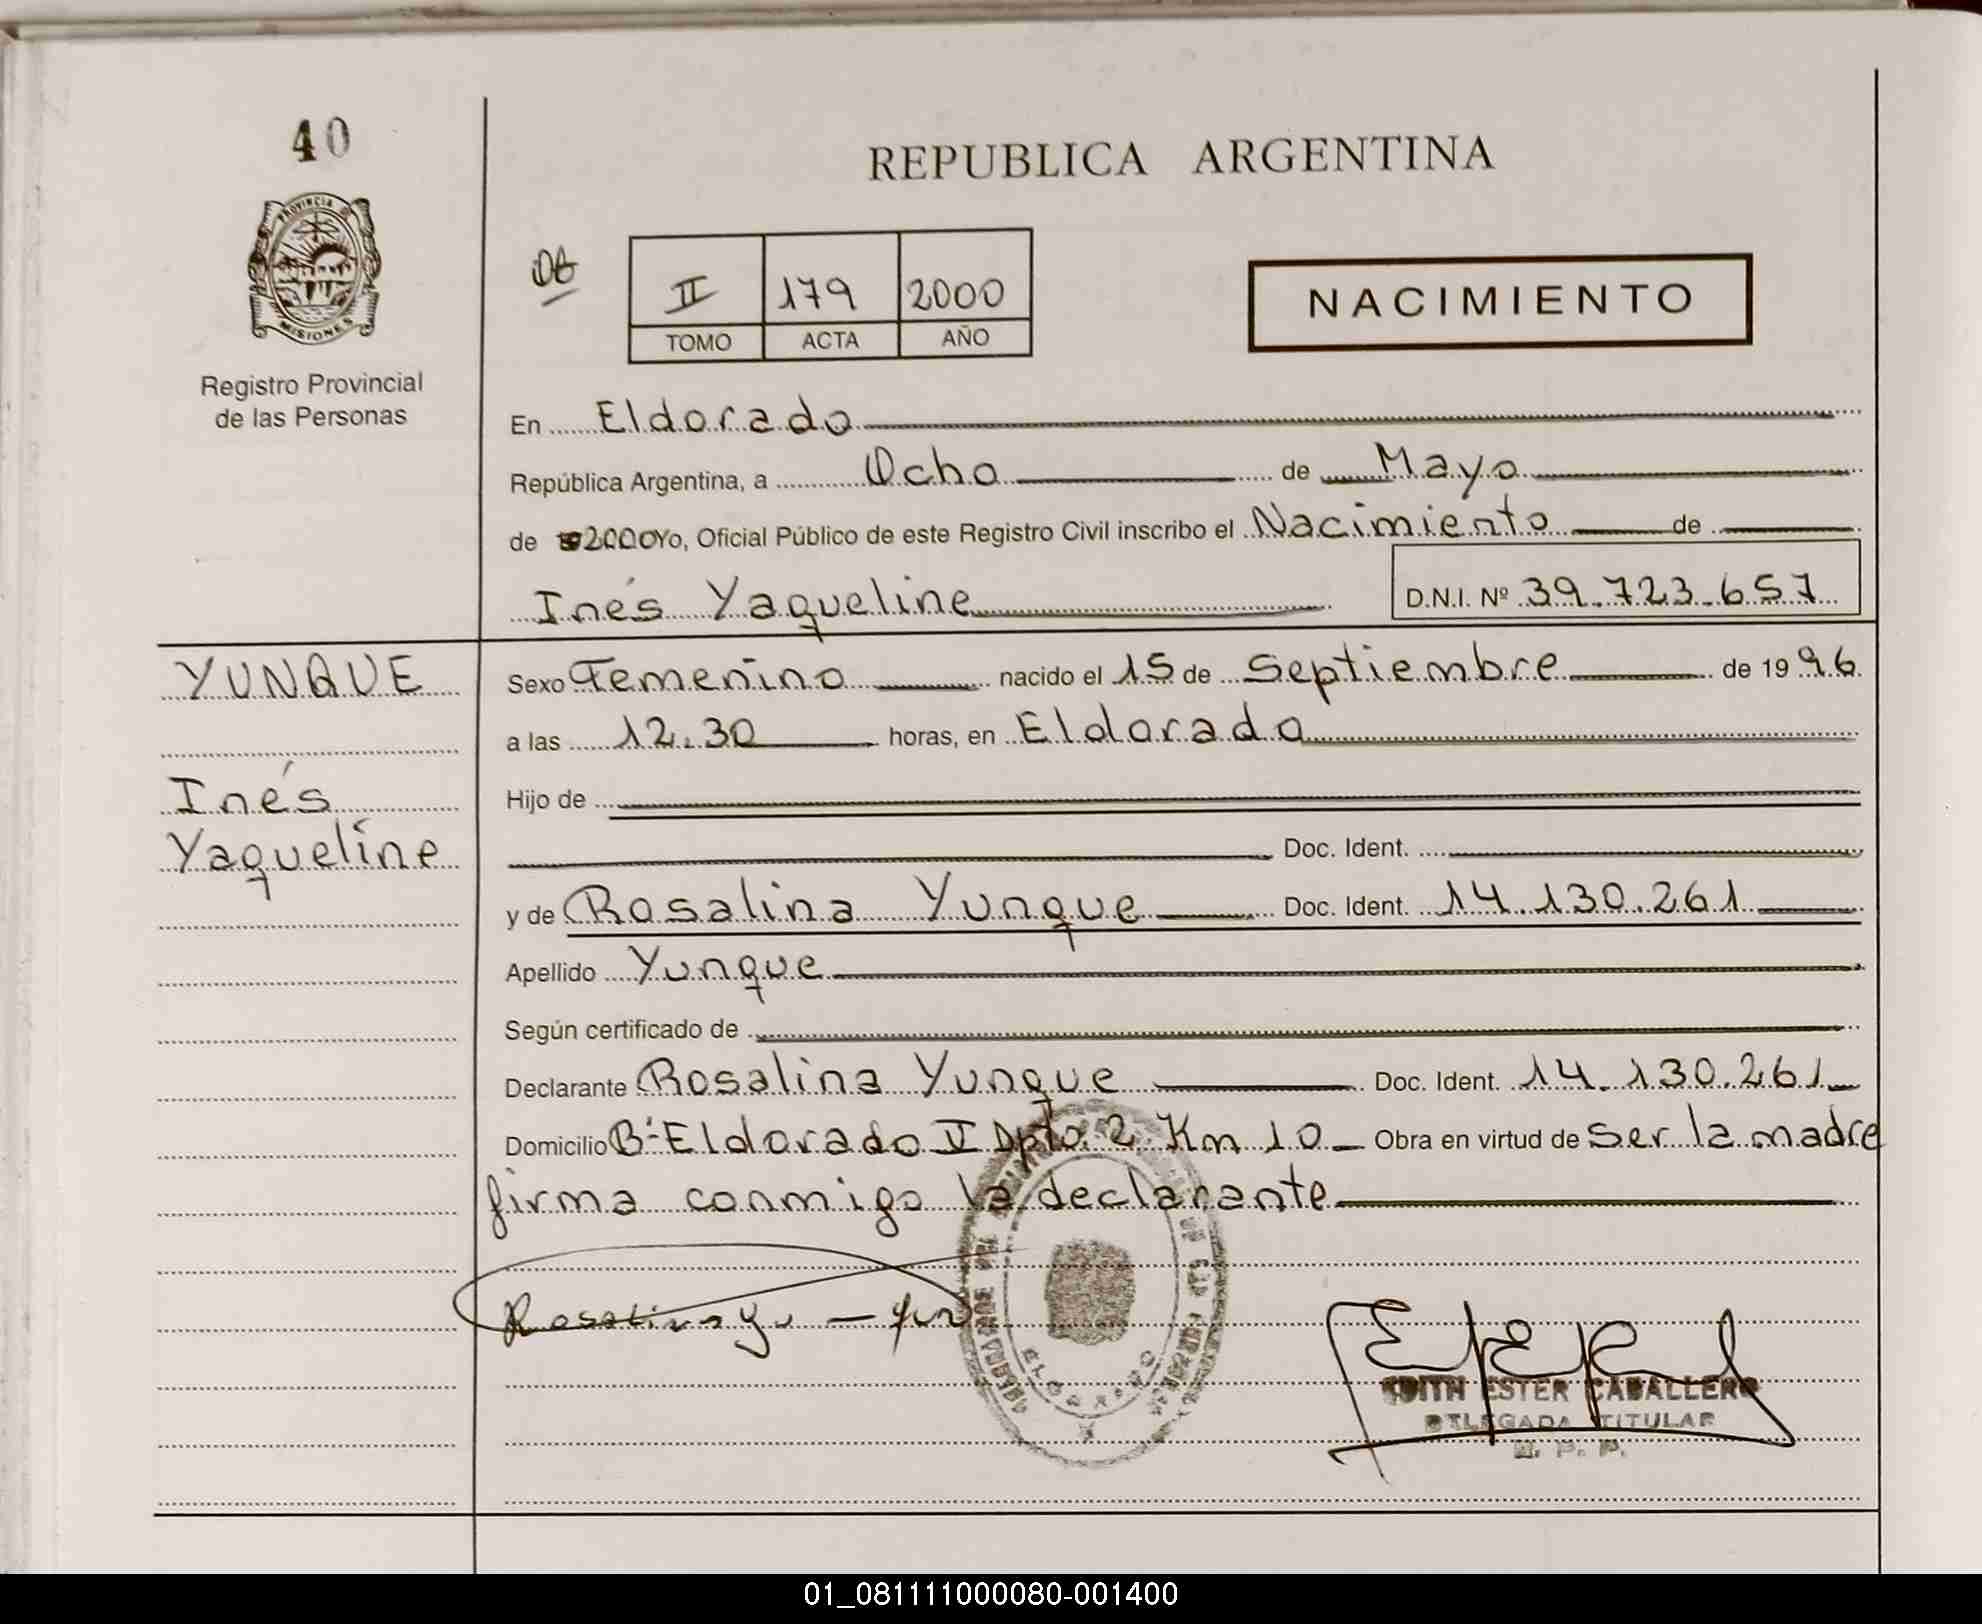 40
PROVINCIA DE
MISIONES
Registro Provincial
de las Personas
REPUBLICA ARGENTINA
06
II 179 2000
TOMO ACTA AÑO
NACIMIENTO
En Eldorado
República Argentina, a Ocho de Mayo
de 2000 Yo, Oficial Público de este Registro Civil inscribo el Nacimiento de
Inés Yaqueline D.N.I. Nº 39.723.657
YUNQUE
Inés
Yaqueline
Sexo Femenino nacido el 15 de Septiembre de 1996
a las 12.30 horas, en Eldorado
Hijo de
Doc. Ident.
y de Rosalina Yunque Doc. Ident. 14.130.261
Apellido Yunque
Según certificado de
Declarante Rosalina Yunque Doc. Ident. 14.130.261
Domicilio Bº Eldorado II Dpto. 2 Km 10 Obra en virtud de Ser la madre
firma conmigo la declarante
ELDORADO
EDITH ESTER CABALLERO
DELEGADA TITULAR
R. P. P.
01_081111000080-001400